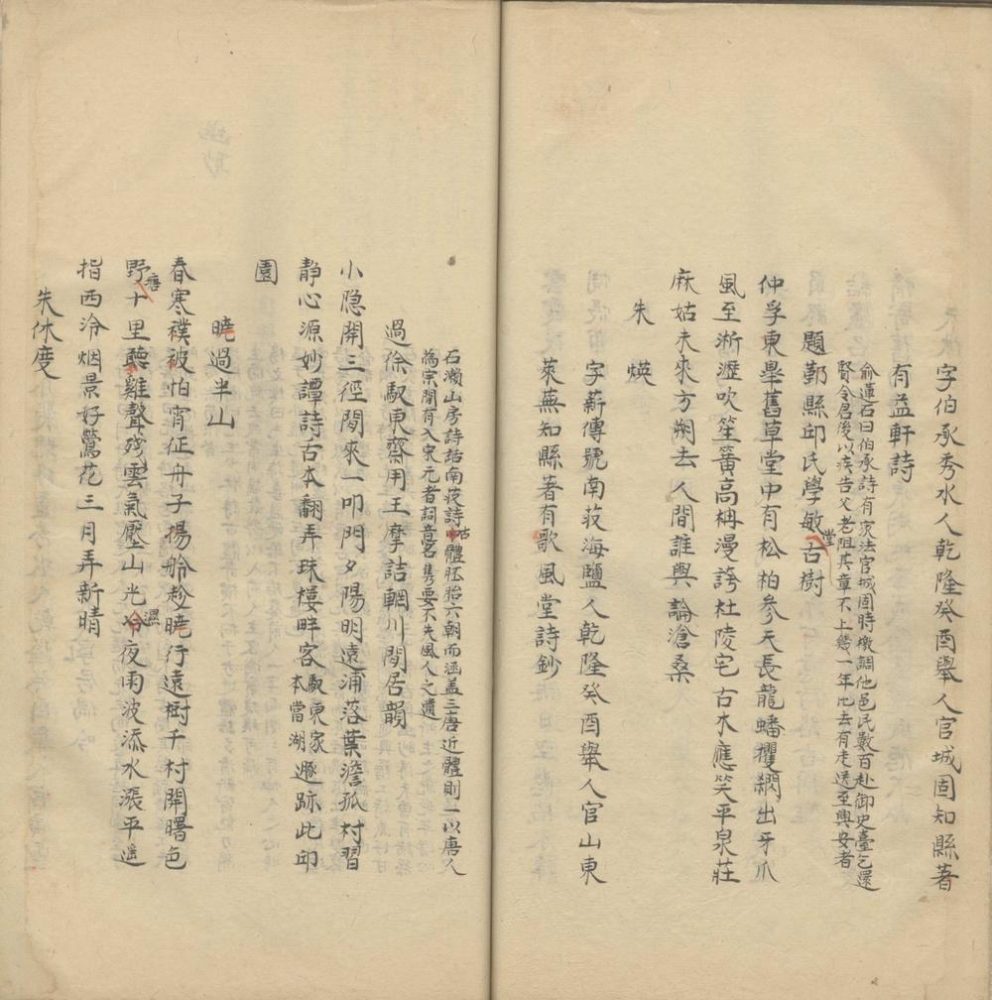 字伯承秀水人乾隆癸酉舉人官城固知縣著
有益軒詩
俞蓮石曰伯承詩有家法官城固時檄調他邑民數百赴御史臺乞還
賢令君後以疾告父老阻其章不上幾一年比去有走送至興安者
題鄞縣邱氏學敏堂古樹
仲孚東舉舊草堂中有松柏參天長龍蟠攫網出牙爪
風至淅瀝吹笙簧高柟漫誇杜陵宅古木應笑平泉莊
麻姑未來方朔去人間誰與論滄桑
朱煐
字薪傳號南荍海鹽人乾隆癸酉舉人官山東
萊蕪知縣著有歌風堂詩鈔
石瀨山房詩話南荍詩古體胚胎六朝而涵蓋三唐近體則一以唐人
為宗間有入宋元者詞意名雋要不失風人之遺
過徐馭東齋用王摩詰輞川閒居韻
小隱開三徑閒來一叩門夕陽明遠浦落葉澹孤村習
靜心源妙譚詩古本翻弄珠樓畔客馭東家本當湖遯跡此邱
園
曉過半山
春寒襆被怕宵征舟子揚舲趁曉行遠樹千村開曙色
野塘十里聽雞聲殘雲氣壓山光溼夜雨波添水漲平遙
指西泠烟景好鶯花三月弄新晴
朱休度